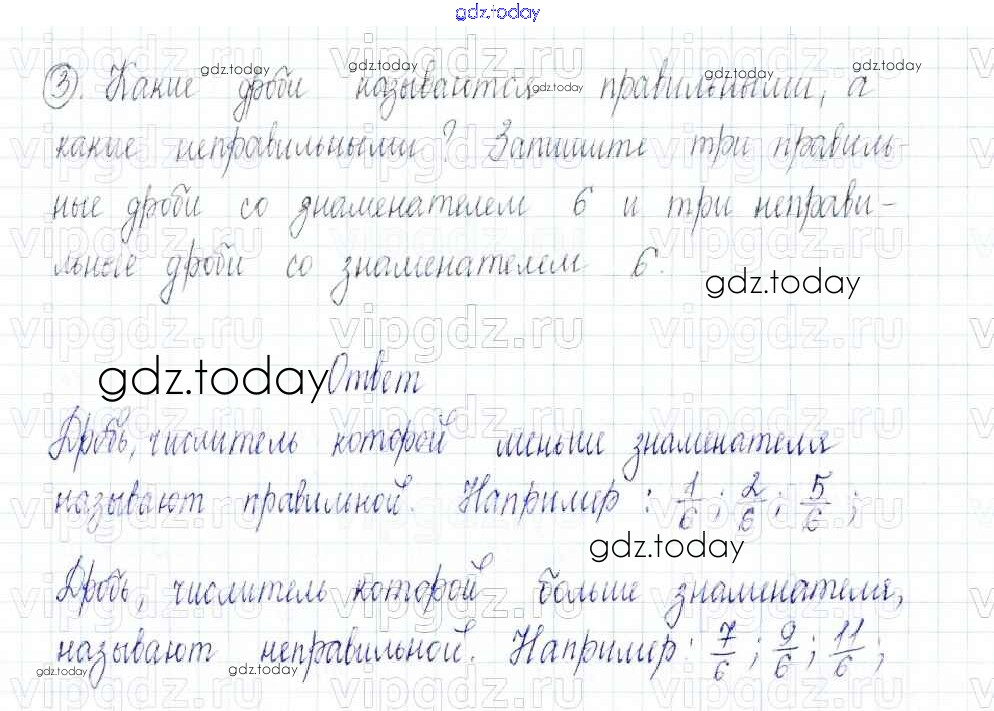 gdz.today
3. Какие дроби называются правильными, а
какие неправильными? Запишите три правиль-
ные дроби со знаменателем 6 и три неправи-
льные дроби со знаменателем 6.
gdz.today
gdz.today Ответ
Дробь, числитель которой меньше знаменателя
называют правильной. Например: 1/6; 2/6; 5/6;
gdz.today
Дробь, числитель которой больше знаменателя,
называют неправильной. Например: 7/6; 9/6; 11/6;